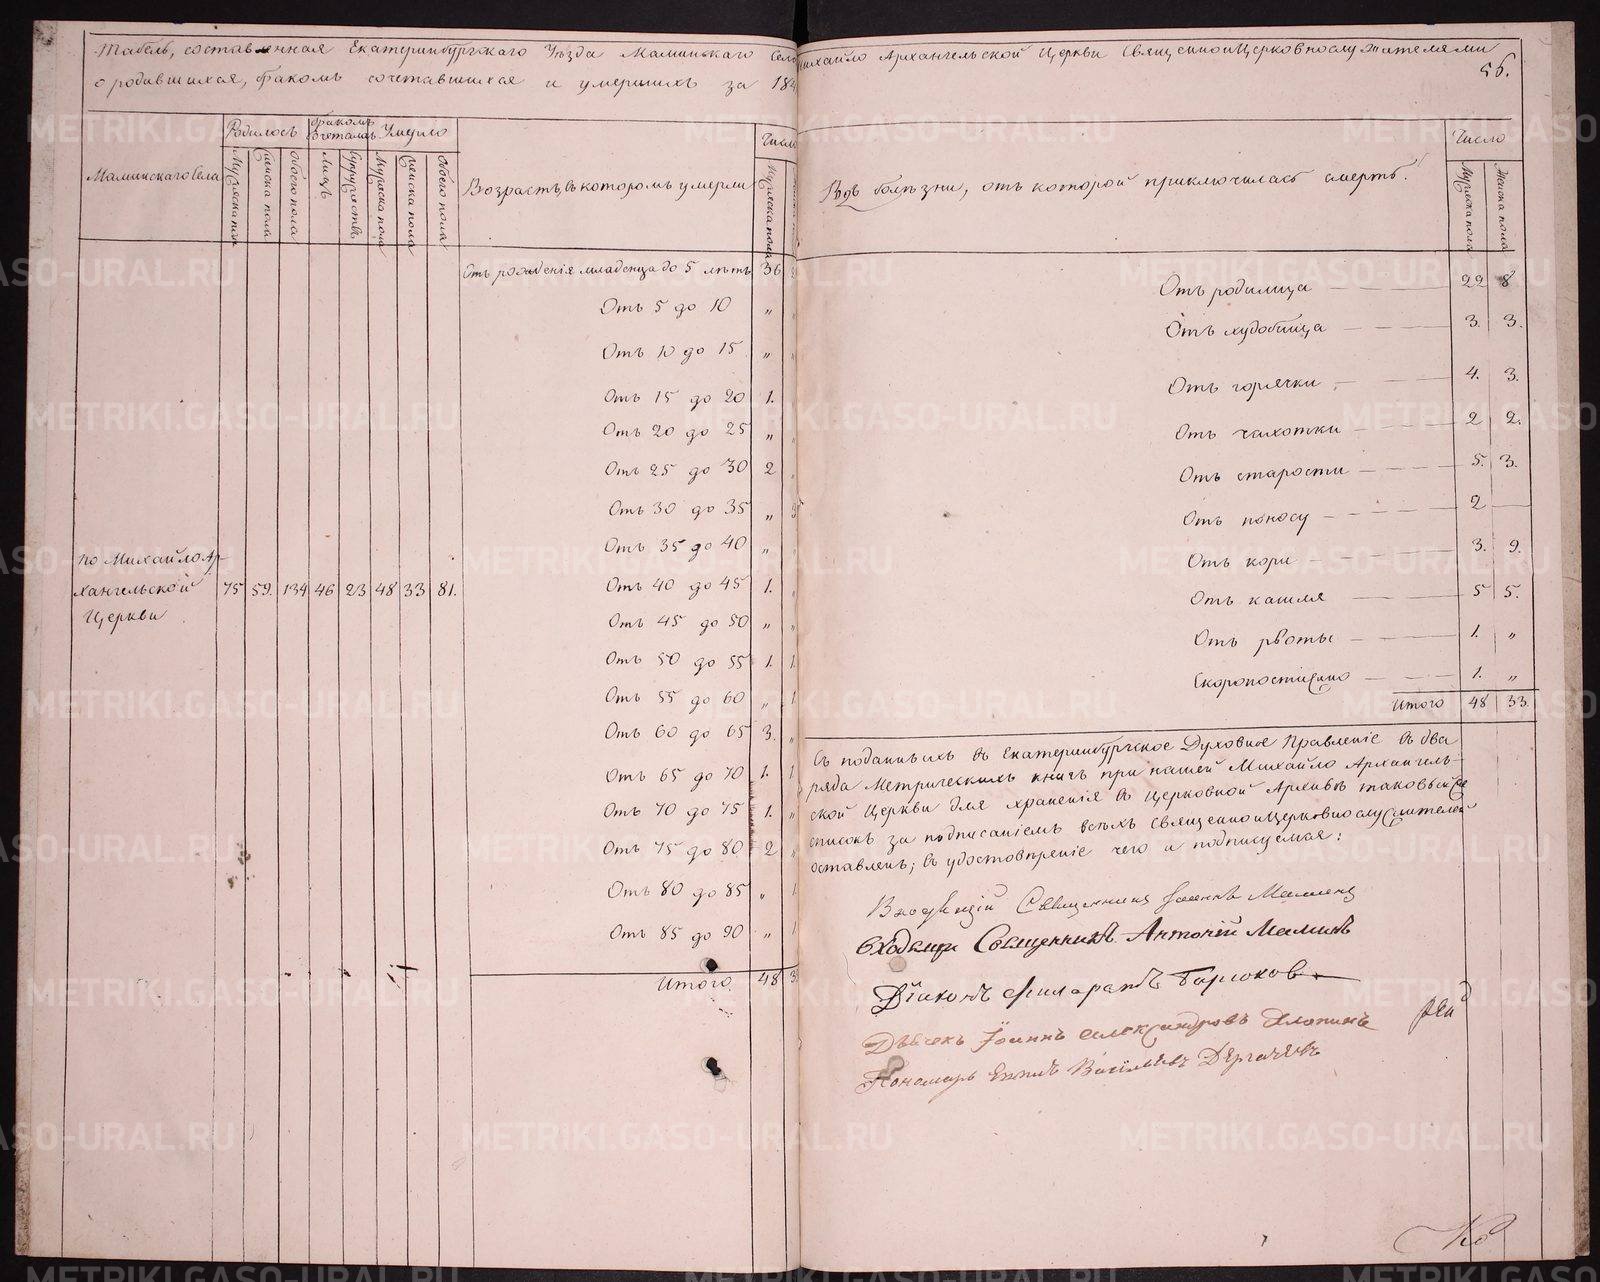 Табель, составленная Екатеринбургскаго Уѣзда Маминскаго Села Михайло Архангельской Церкви Священноицерковнослужителями
о родившихся, бракомъ сочетавшихся и умершихъ за 184
56.
Маминскаго села
Родилось
бракомъ сочеталось
Умерло
Мужеска пола
Женска пола
Обоего пола
Лицъ
Супружествъ
Мужеска пола
Женска пола
Обоего пола
Возрастъ, въ которомъ умерли
Число
Мужеска пола
Родъ болѣзни, отъ которой приключилась смерть.
Число
Мужеска пола
Женска пола
по Михайло Ар-
хангельской
Церкви
75 59. 134 46 23 48 33 81.
Отъ рожденія младенца до 5 лѣтъ 36
Отъ 5 до 10 „
Отъ 10 до 15 „
Отъ 15 до 20 1.
Отъ 20 до 25 „
Отъ 25 до 30 2
Отъ 30 до 35 „
Отъ 35 до 40 „
Отъ 40 до 45 1.
Отъ 45 до 50 „
Отъ 50 до 55 1. 1.
Отъ 55 до 60 „ 1
Отъ 60 до 65 3. „
Отъ 65 до 70 1. 1
Отъ 70 до 75 1. „
Отъ 75 до 80 2 „
Отъ 80 до 85 „ 1
Отъ 85 до 90 „ 1
Итого 48 3
Отъ родимца 22 8
Отъ худобища 3. 3.
Отъ горячки 4. 3.
Отъ чахотки 2 2.
Отъ старости 5. 3.
Отъ поносу 2 —
Отъ кори 3. 9.
Отъ кашля 5 5.
Отъ рвоты 1. „
Скоропостижно 1. „
Итого 48 33.
Съ поданныхъ въ Екатеринбургское Духовное Правленіе въ два
ряда Метрическихъ книгъ при нашей Михайло Архангель-
ской Церкви для храненія въ Церковной Архивѣ таковый же
списокъ за подписаніемъ всѣхъ священноицерковнослужителей
оставленъ; въ удостовѣреніе чего и подписуемся:
Священникъ Іоаннъ Маминъ
Священникъ Антоній Маминъ
Діаконъ Филаретъ
Дьячекъ Іоаннъ Александровъ Хлопинъ
Пономарь Васильевъ Дергачевъ
METRIKI.GASO-URAL.RU